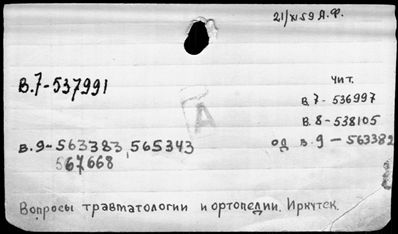 21/XI 59 А.Ф.
В.7-537991
Чит.
В 7 - 536997
В. 8 - 538105
в.9-563383, 565343
од в. 9 - 563382
567668
А
Вопросы травматологии и ортопедии. Иркутск.